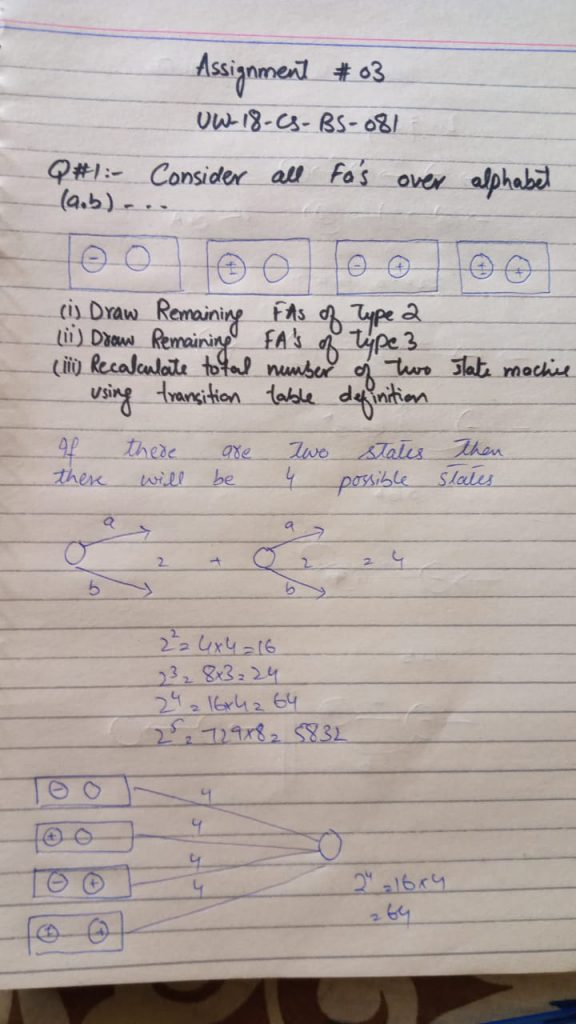 Assignment # 03
UW-18-CS-BS-081
Q#1:- Consider all Fa's over alphabet
(a.b) - - - -
- ± - + ± +
(i) Draw Remaining FAs of Type 2
(ii) Draw Remaining FA's of Type 3
(iii) Recalculate total number of two state machine
using transition table definition
If there are two states then
there will be 4 possible states
a a
2 + 2 = 4
b b
2² = 4×4 = 16
2³ = 8×3 = 24
2⁴ = 16×4 = 64
2⁵ = 729×8 = 5832
- 4
+ 4
- + 4
4
2⁴ = 16×4
± + = 64